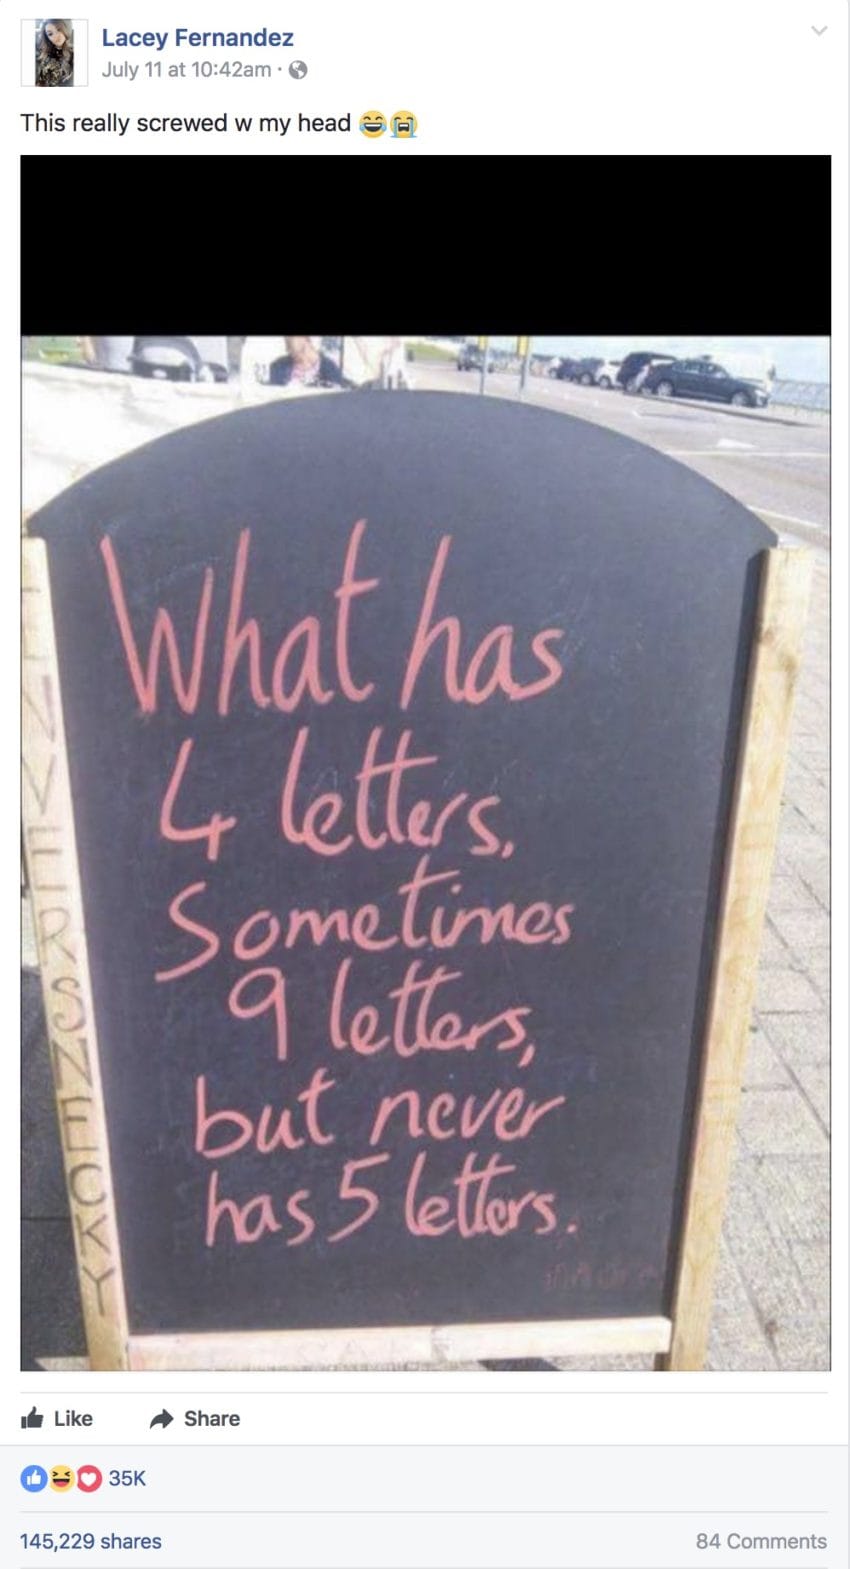 Lacey Fernandez
July 11 at 10:42am ·
This really screwed w my head 😂😭
What has
4 letters,
Sometimes
9 letters,
but never
has 5 letters.
INVERSNECKY
Like Share
35K
145,229 shares 84 Comments